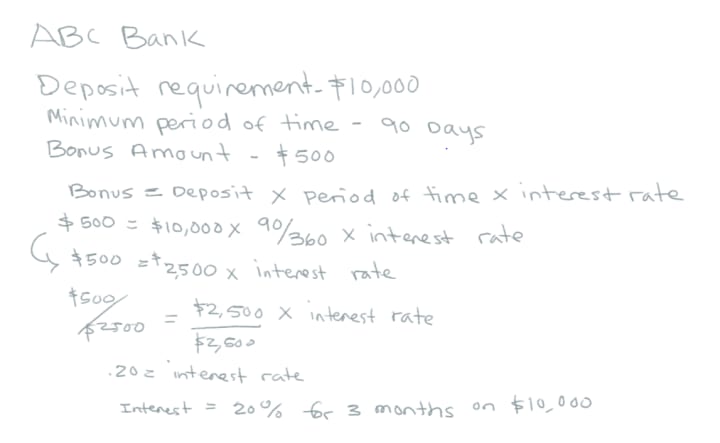 ABC Bank
Deposit requirement - $10,000
Minimum period of time - 90 Days
Bonus Amount - $500
Bonus = Deposit x Period of time x interest rate
$500 = $10,000 x 90/360 x interest rate
$500 = $2,500 x interest rate
$500/$2500 = $2,500 x interest rate
$2,500
.20 = interest rate
Interest = 20% for 3 months on $10,000